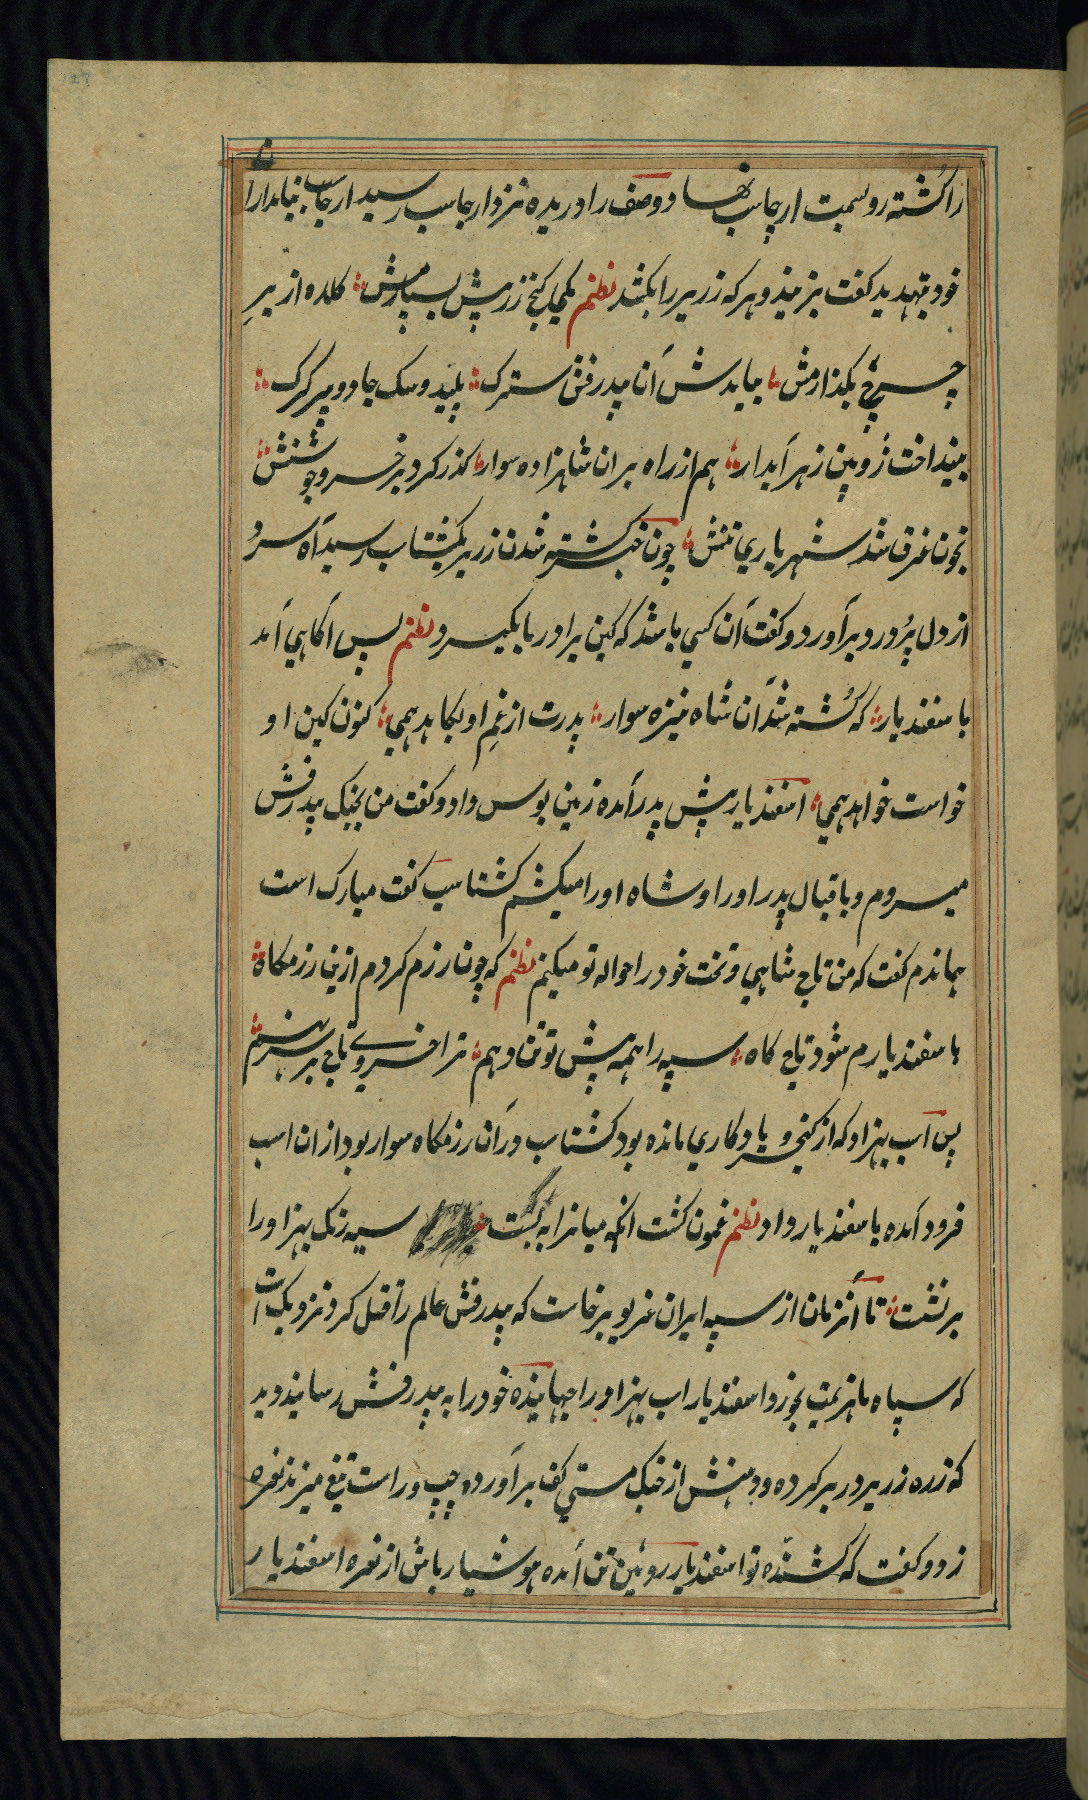 را کشته رو بسمت ارجاسپ نهاد و صف را دریده نزد ارجاسپ رسید ارجاسپ نامدار
خود بتهدید گفت بزنید و هر که زریر را بکشد نظم یکی گنج زر پیش بسپارمش کلاه از بر
چرخ بگذارمش بیامدش آنا بیدرفش سترک پلید و سگ جادو و پیر گرگ
بینداخت ژوپین زهر آبدار هم از راه بران شاهزاده سوار گذر کرد بر خسرو جوشنش
بخون غرق شد شهریاری تنش چون خبر کشته شدن زریر بگشتاسب رسید آه سرد
از دل پُردرد برآورد و گفت آن کسی باشد که کین برادر ما بگیرد نظم پس آگاهی آمد
باسفندیار که کُشته شد آن شاه نیزه سوار پدرت از غمِ او بکاهد همی کنون کین او
خواست خواهد همی اسفندیار پیش پدر آمده زمین بوس داد و گفت من بجنگ بیدرفش
میروم و باقبال پدر او را و شاه او را میکشم گشتاسب گفت مبارک است
هماندم گفت که من تاج شاهی و تخت خود را حواله تو میکنم نظم که چون رزم کردم ازین رزمگاه
باسفندیارم شود تاج گاه سپه را همه پیش تو من دهم ترا خسروی تاج بر سر نهم
پس اسپ بهزاد که از کیخسرو یادگاری مانده بود گشتاسب در آن رزمگاه سوار بود از ان اسب
فرود آمده باسفندیار داد نظم غمون گشت آنگه میانرا به بست سیه رنگ بهزاد را
برنشت تا آنزمان از سپه ایران غریو برخاست که بیدرفش عالم را قتل کرد نزدیک است
که سپاه ما هزیمت بخورد اسفندیار اسب بهزاد را جهانیده خود را به بیدرفش رسانید و دید
که زره زریر در بر کرده و دهنش از جنگ مستی کف برآورده چپ و راست تیغ میزند نعره
زد و گفت که کشنده تو اسفندیار روئین تن آمده هوشیار باش از نعره اسفندیار